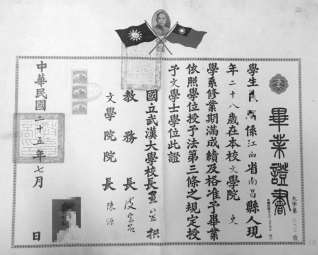 畢業證書
學生 係江西省南昌縣人現
年二十八歲在本校文學院 史
學系修業期滿成績及格准予畢業
依照學位授予法第三條之規定授
予文學士學位此證
國立武漢大學校長王星拱
教務長 皮宗石
文學院院長 陳源
中華民國二十五年七月 日